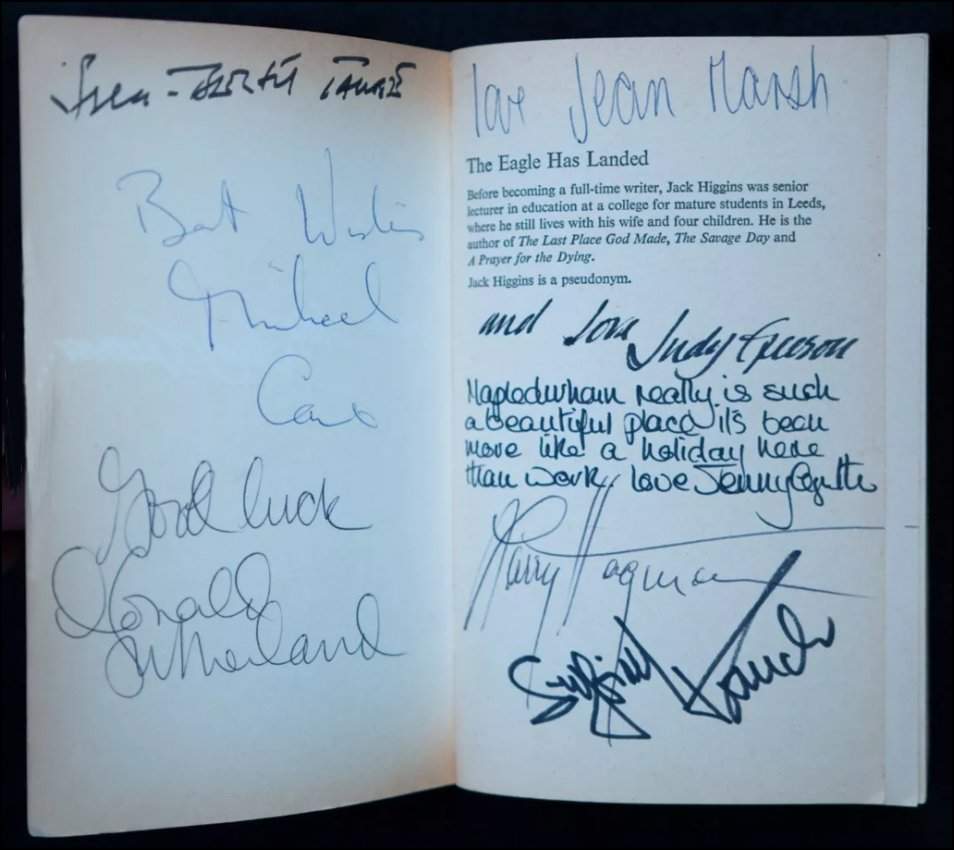 Sven-Bertil Taube
Best Wishes
Michael
Caine
Good luck
Donald
Sutherland
love Jean Marsh
The Eagle Has Landed
Before becoming a full-time writer, Jack Higgins was senior
lecturer in education at a college for mature students in Leeds,
where he still lives with his wife and four children. He is the
author of The Last Place God Made, The Savage Day and
A Prayer for the Dying.
Jack Higgins is a pseudonym.
and love Judy Geeson
Mapledurham really is such
a beautiful place it's been
more like a holiday here
than work, love Jenny Agutter
Larry Hagman